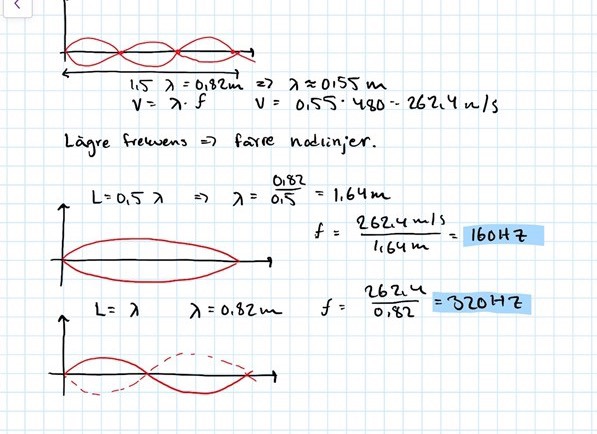 1,5 λ = 0,82m => λ ≈ 0,55 m
V = λ · f V = 0,55 · 480 - 262,4 m/s
Lägre frekvens => färre nodlinjer.
L = 0,5 λ => λ = 0,82 / 0,5 = 1,64 m
f = 262,4 m/s / 1,64 m = 160HZ
L = λ λ = 0,82 m f = 262,4 / 0,82 = 320HZ